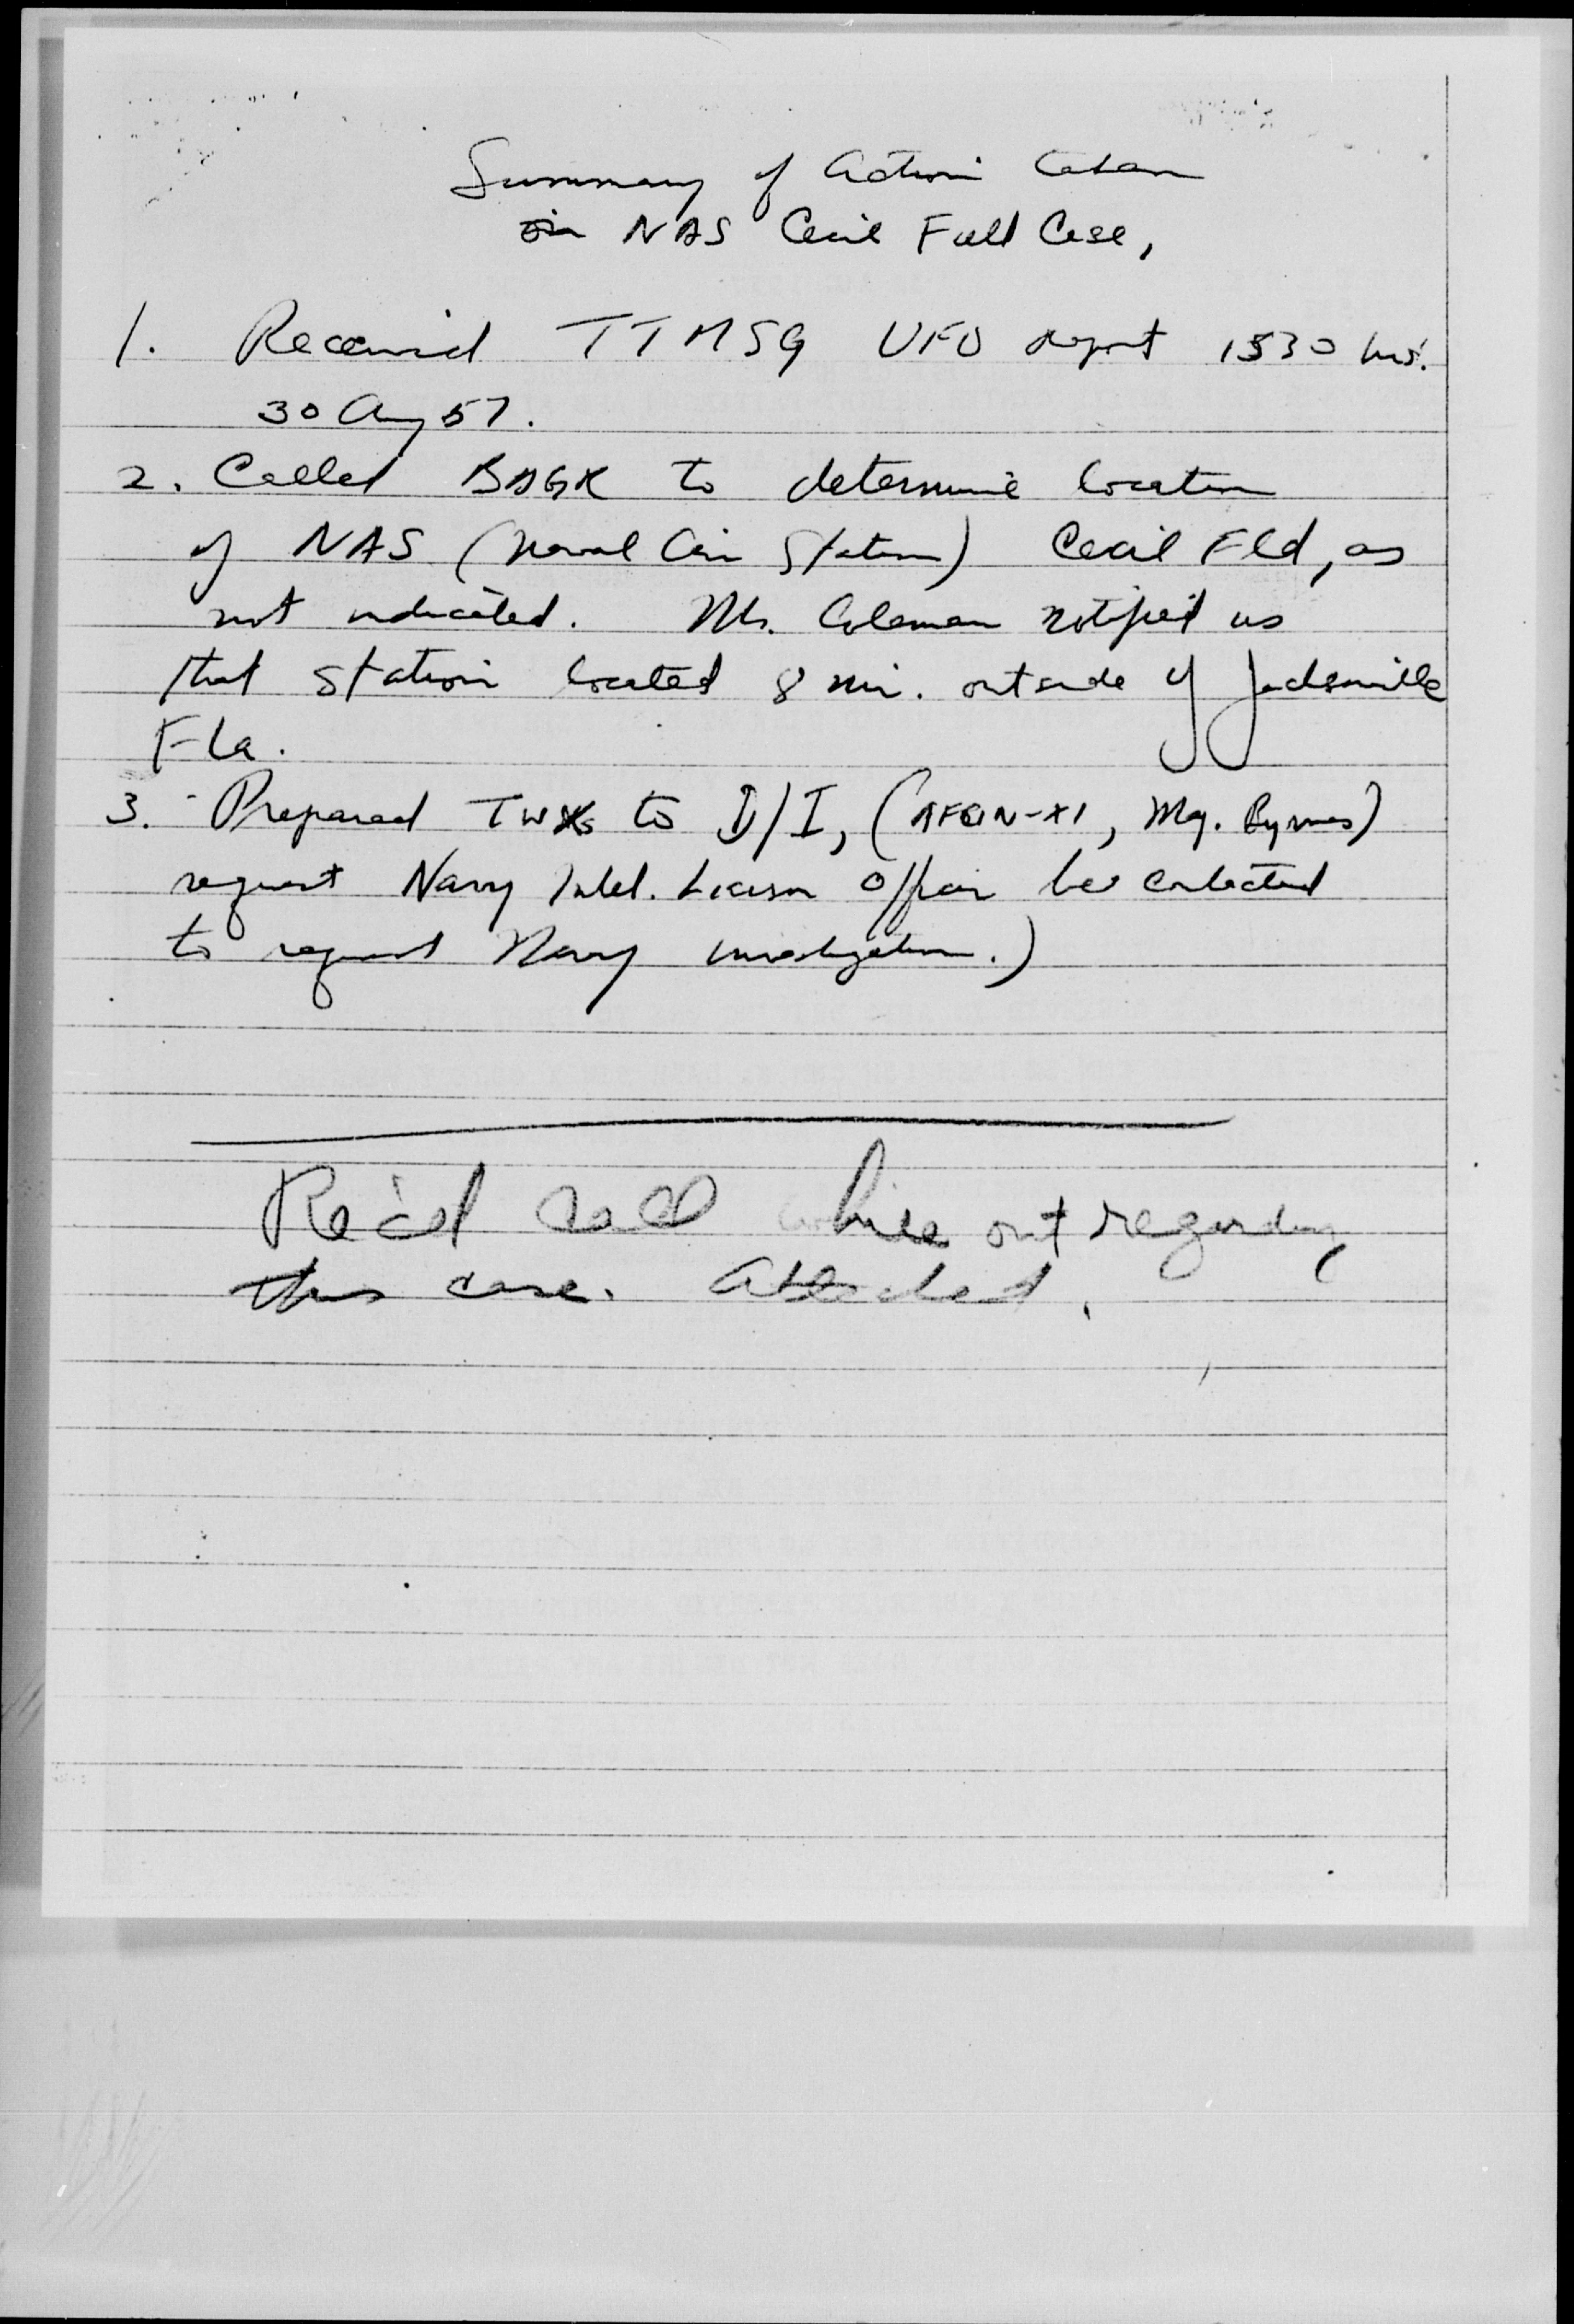 Summary of Action taken
in NAS Cecil Field Case,
1. Received TT MSG UFO report 1530 hrs.
30 Aug 57.
2. Called to determine location
of NAS (Naval Air Station) Cecil Fld, as
not indicated. Mr. Coleman notified us
that station located 8 mi. outside of Jacksonville
Fla.
3. Prepared TWX to D/I, (AFOIN-X1, Maj. Byrnes)
request Navy Intel. Liaison Officer be contacted
to request Navy investigation.)
Rec'd call while out regarding
this case. Attached.